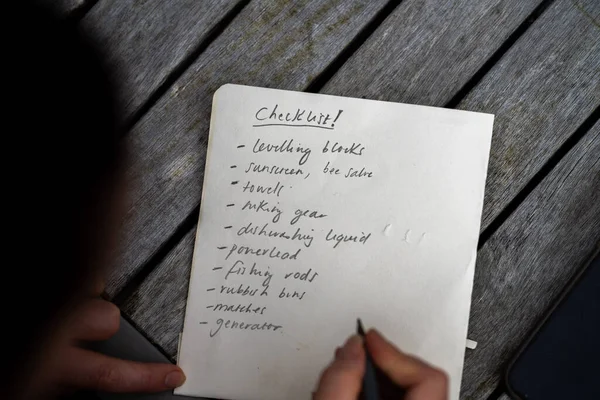 Checklist!
- levelling blocks
- sunscreen, bee salve
- towels
- hiking gear
- dishwashing liquid
- powerlead
- fishing rods
- rubbish bins
- matches
- generator